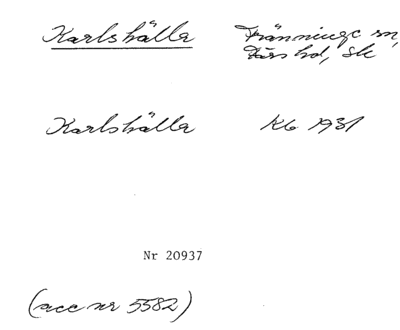 Karlshälla Tranninge sn,
Färs hd, Sk
Karlshälla Kb 1931
Nr 20937
(acc nr 5582)